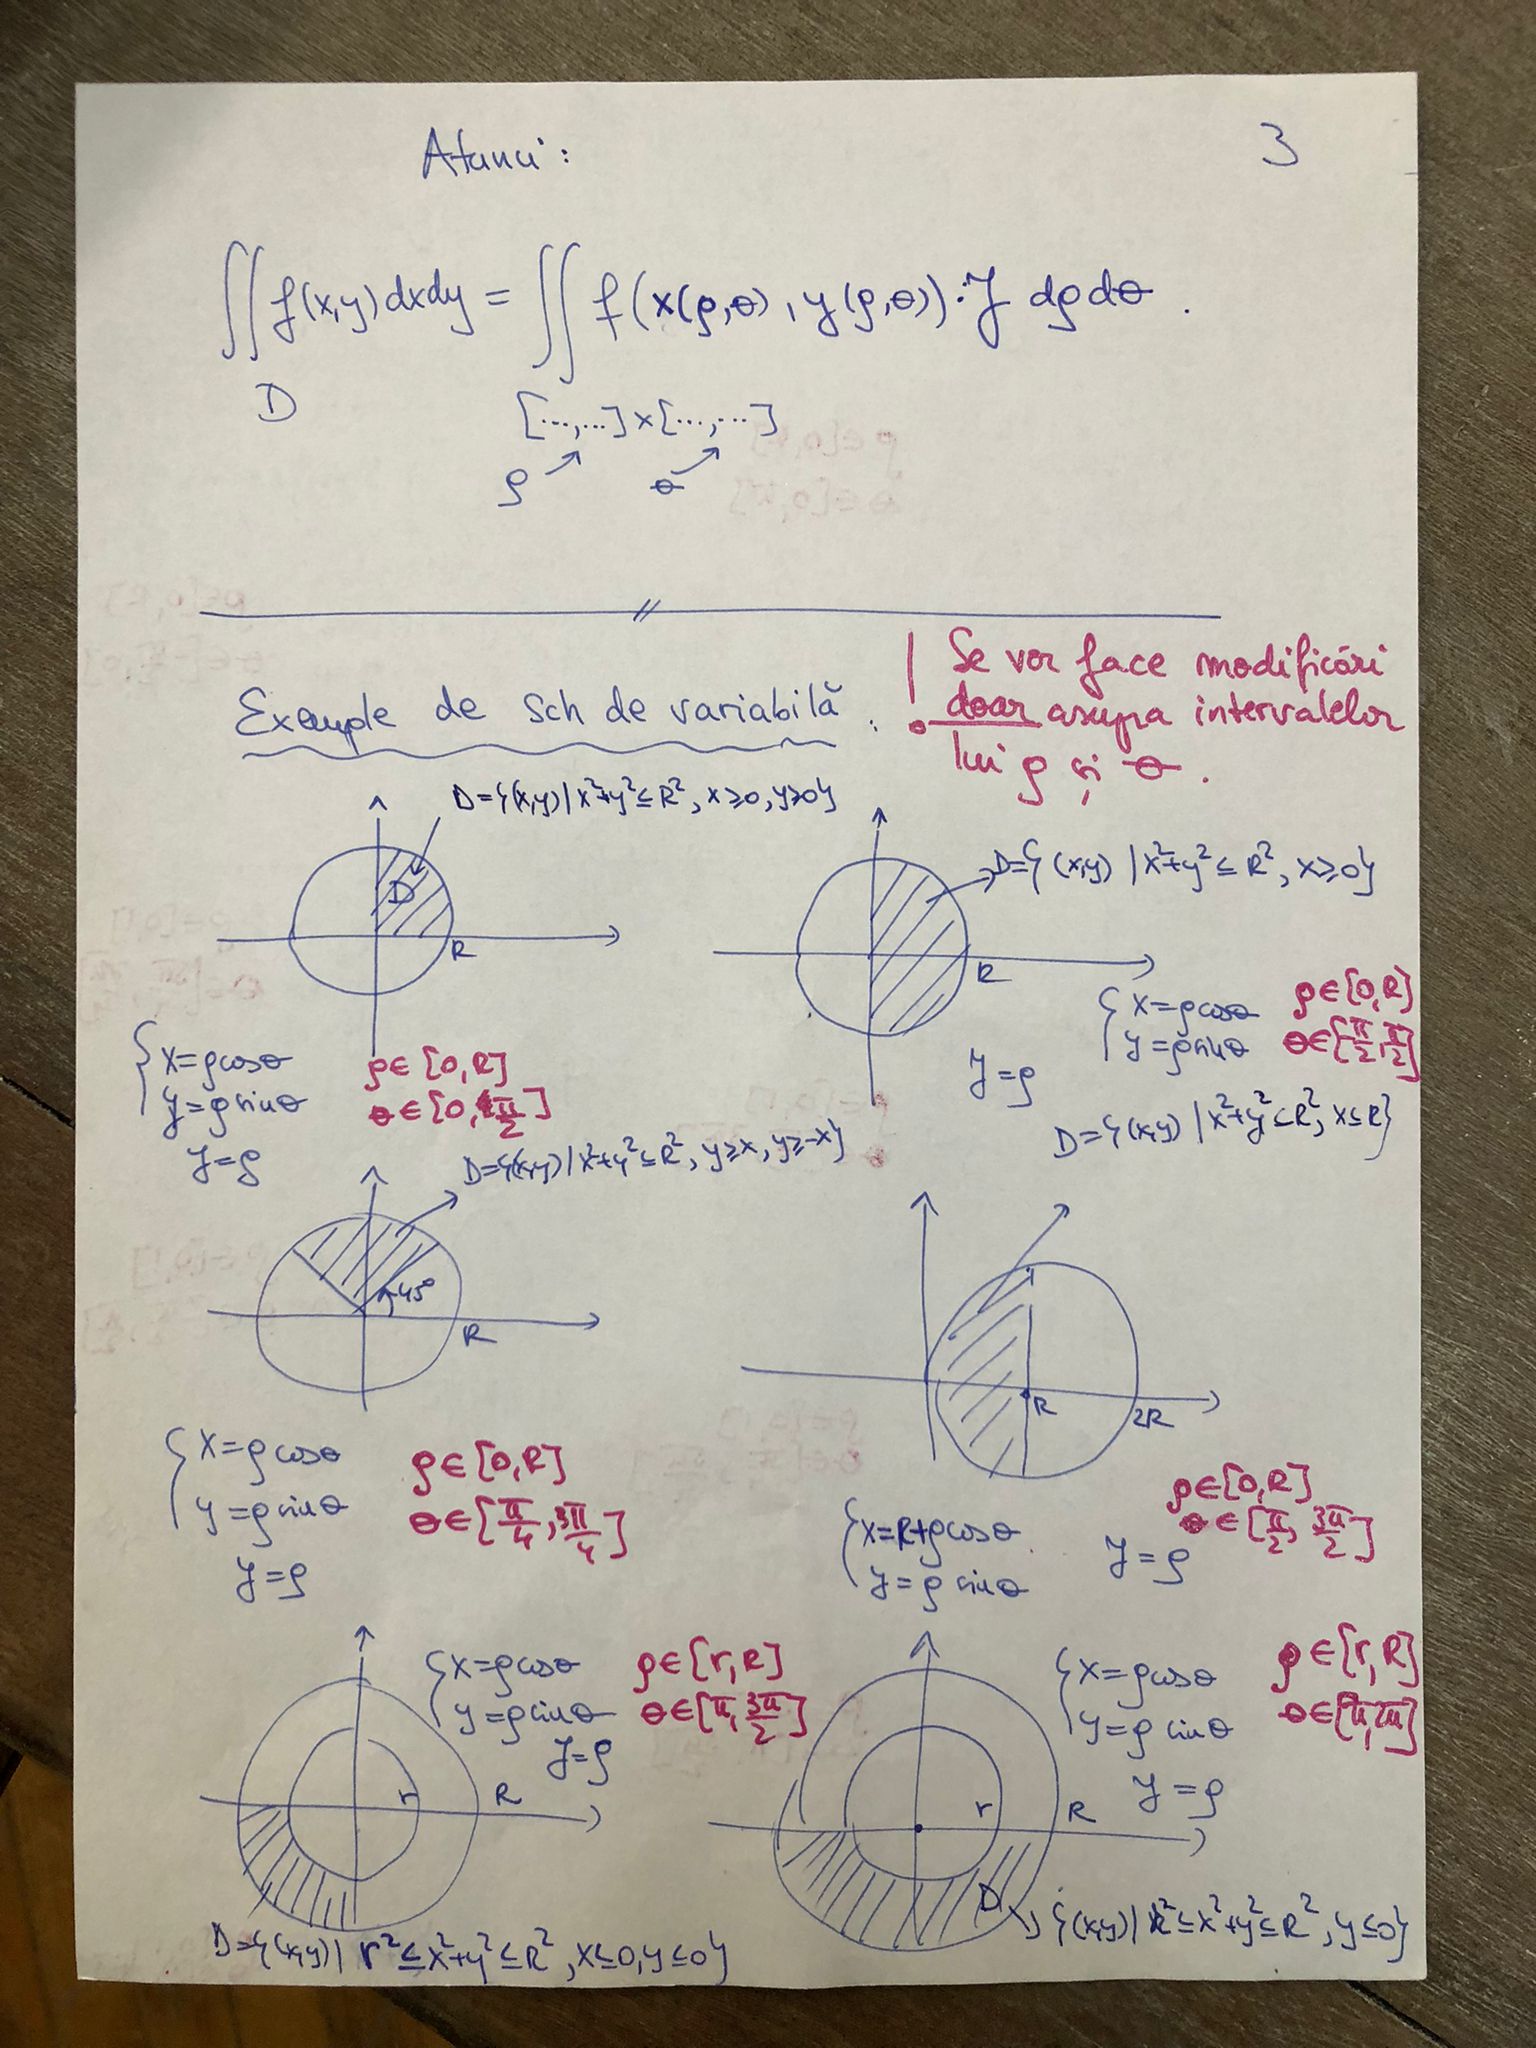 Atunci: 3
∬ f(x,y) dxdy = ∬ f(x(ρ,θ), y(ρ,θ))·J dρdθ.
D [...,...]×[...,...]
ρ θ
Exemple de sch de variabilă:
! Se vor face modificări
doar asupra intervalelor
lui ρ și θ.
D={(x,y)|x²+y²≤R², x≥0, y≥0}
D
R
{x=ρcosθ
y=ρsinθ
J=ρ
ρ∈[0,R]
θ∈[0,π/2]
D={(x,y) | x²+y²≤R², x≥0}
R
{x=ρcosθ
y=ρsinθ
J=ρ
ρ∈[0,R]
θ∈[-π/2,π/2]
D={(x,y)|x²+y²≤R², y≥x, y≥-x}
45°
R
{x=ρcosθ
y=ρsinθ
J=ρ
ρ∈[0,R]
θ∈[π/4,3π/4]
D={(x,y) | x²+y²≤R², x≤R}
R 2R
{x=R+ρcosθ
y=ρsinθ
J=ρ
ρ∈[0,R]
θ∈[π/2,3π/2]
{x=ρcosθ
y=ρsinθ
J=ρ
ρ∈[r,R]
θ∈[π,3π/2]
r R
D={(x,y)| r²≤x²+y²≤R², x≤0, y≤0}
{x=ρcosθ
y=ρsinθ
J=ρ
ρ∈[r,R]
θ∈[π,2π]
r R
D {(x,y)| r²≤x²+y²≤R², y≤0}